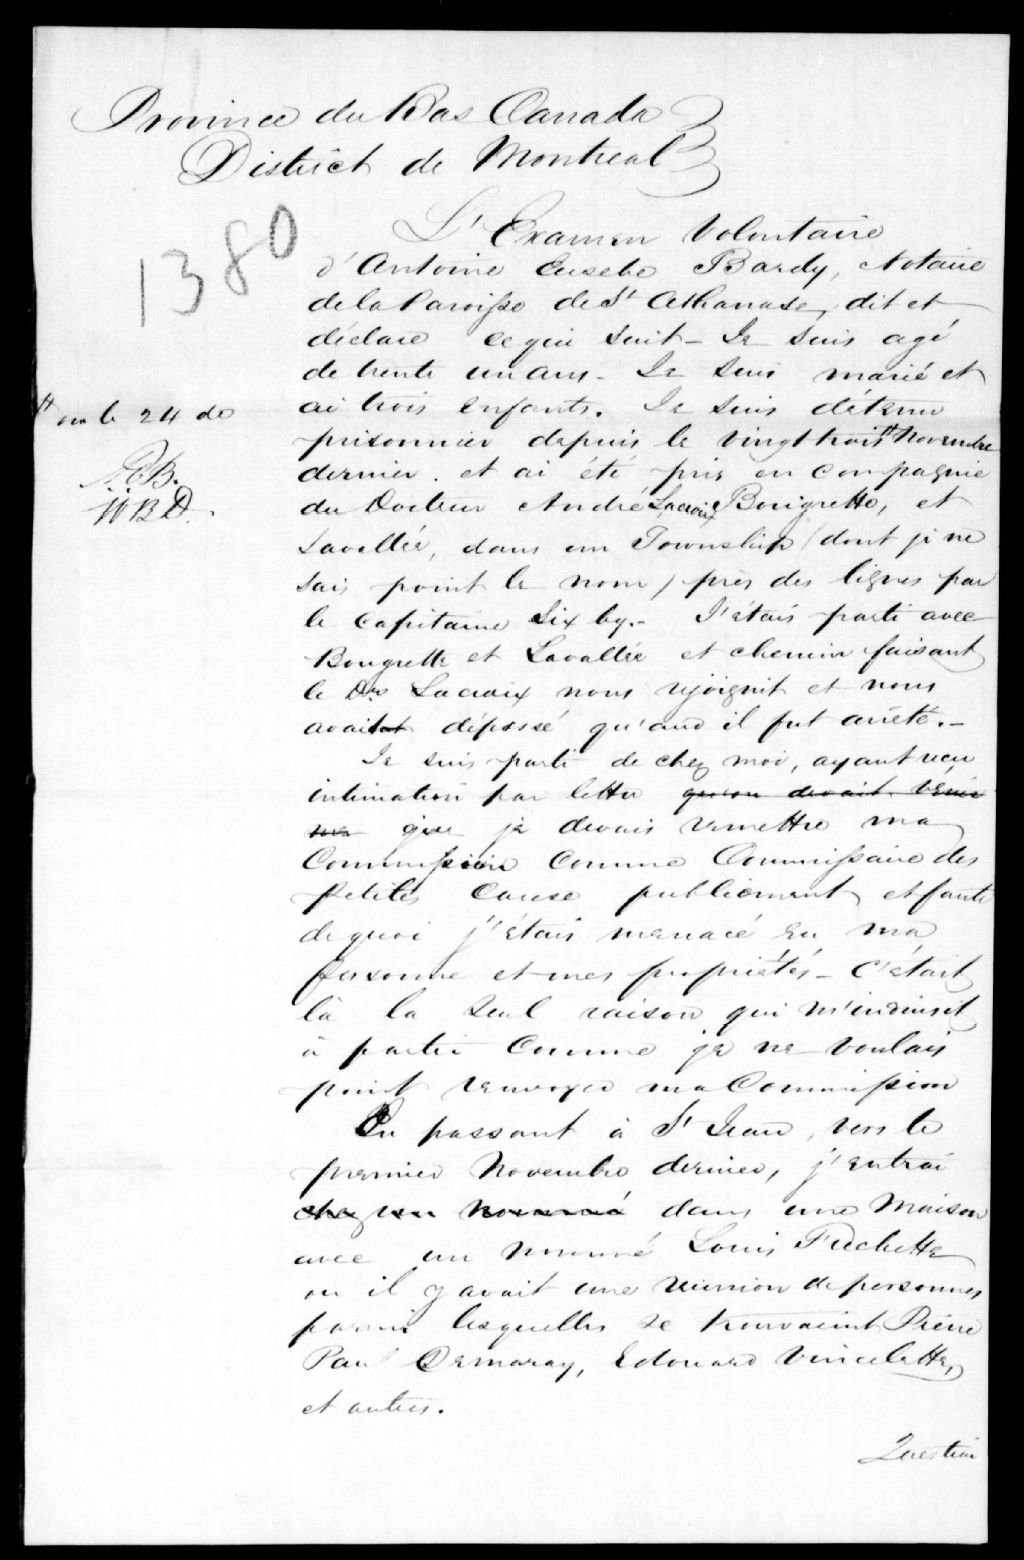 Province du Bas Canada
District de Montreal
1380
L'Examen Volontaire
d'Antoine Eusebe Bardy, Notaire
de la Paroisse de St Athanase, dit et
déclare ce qui suit - Je suis agé
de trente un ans - Je suis marié et
ai trois enfants. Je suis détenu
prisonnier depuis le vingt trois # Novembre
# ou le 24 do
A.E.B.
W.B.D.
dernier. et ai été pris en compagnie
du Docteur André Lacroix Bougrette, et
Lavallée, dans un Township (dont je ne
sais point le nom) près des lignes par
le Capitaine Sixby. - J'étais parti avec
Bougrette et Lavallée et chemin faisant
le Dr Lacroix nous rejoignit et nous
avait dépassé qu'and il fut arrêté. -
Je suis parti de chez moi, ayant reçu
intimation par lettre qu'on devait venir
me que je devais remettre ma
Commission Comme Commissaire des
petites Cause publiement et faute
de quoi j'étais menacé en ma
personne et mes propriétés - C'était
là la seul raison qui m'induisit
à partir Comme je ne voulais
point renvoyer ma Commission
En passant à St Jean, vers le
premier Novembre dernier, j'entrai
chez un nommé dans une Maison
avec un nommé Louis Puchette
ou il y avait une réunion de personnes
parmi lesquelles se trouvaient Pierre
Paul Demaray, Edouard Vincelette,
et autres.
Question